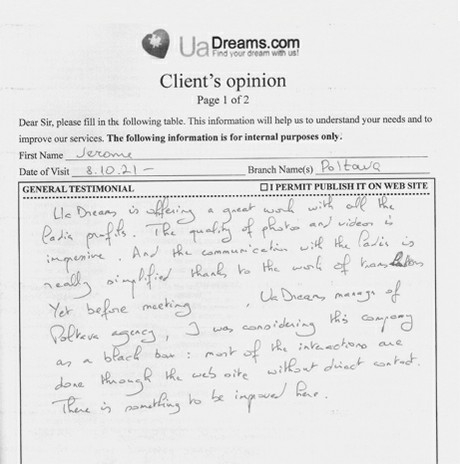 UaDreams.com
Find your dream with us!
Client's opinion
Page 1 of 2
Dear Sir, please fill in the following table. This information will help us to understand your needs and to
improve our services. The following information is for internal purposes only.
First Name Jerome
Date of Visit 8.10.21 - Branch Name(s) Poltava
GENERAL TESTIMONIAL ☐ I PERMIT PUBLISH IT ON WEB SITE
Ua Dreams is offering a great work with all the
ladis profits. The quality of photos and videos is
impresive. And the communication with the ladis is
really simplified thanks to the work of
Yet before meeting , UaDreams manager of
Poltava agency, I was considering this company
as a black box : most of the interactions are
done through the web site without direct contact.
There is something to be improved here.